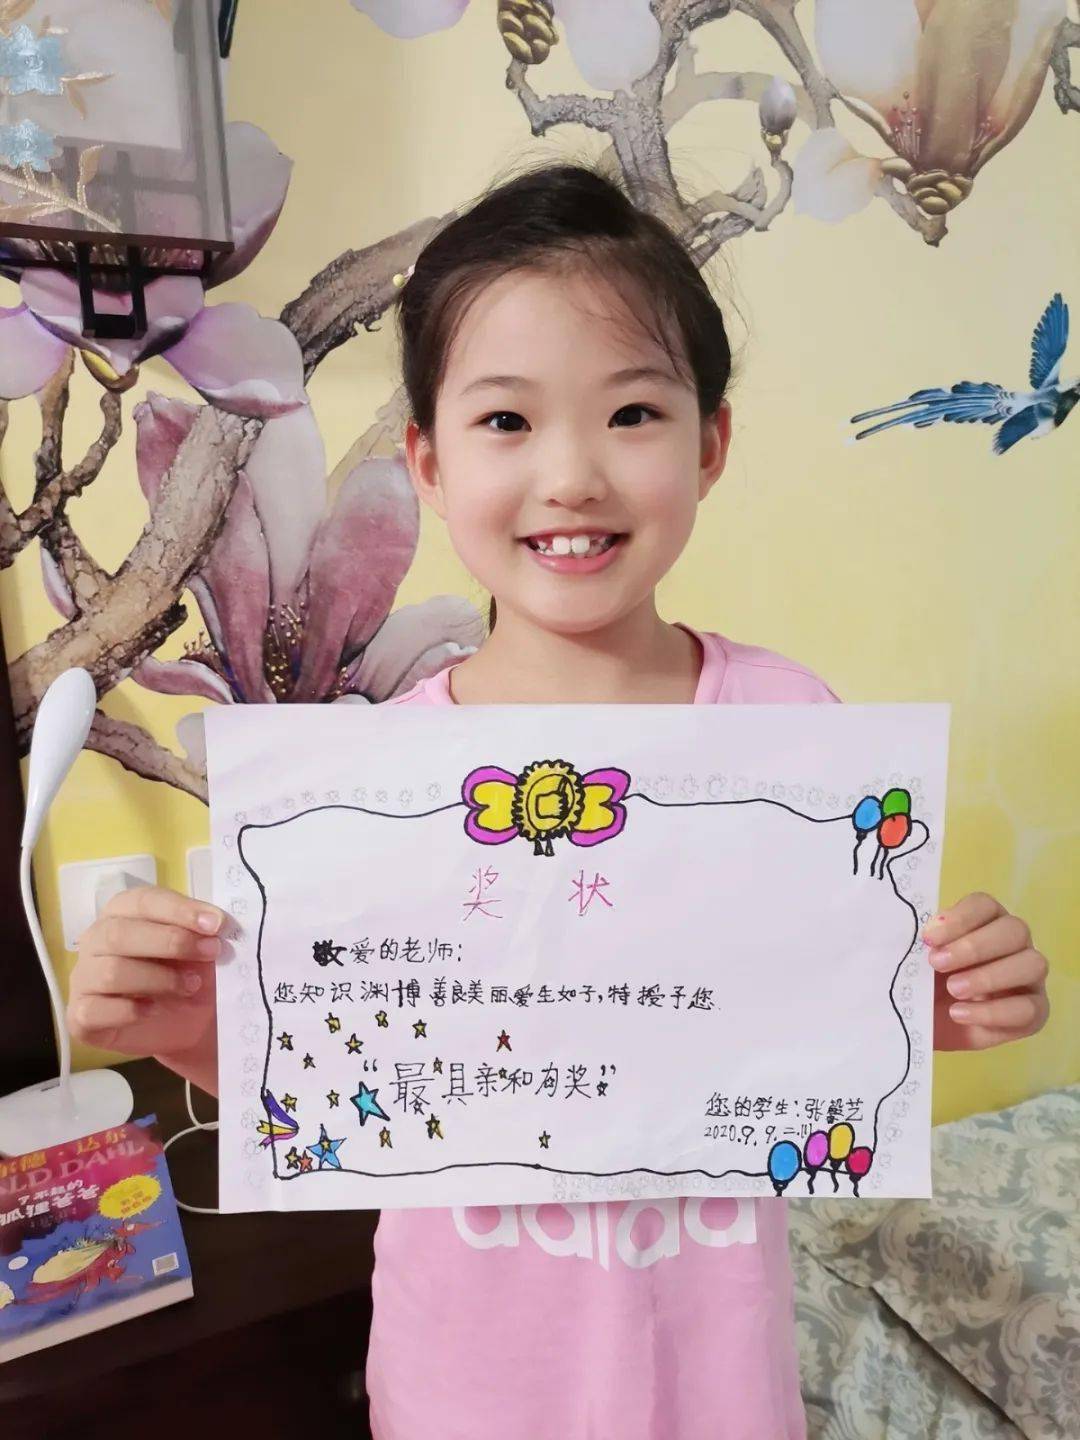 奖状
敬爱的老师：
您知识渊博善良美丽爱生如子，特授予您
“最具亲和力奖”
您的学生：张馨艺
2020.9.9.二川
尔德·达尔
ALD DAHL
了不起的
狐狸爸爸
adidas